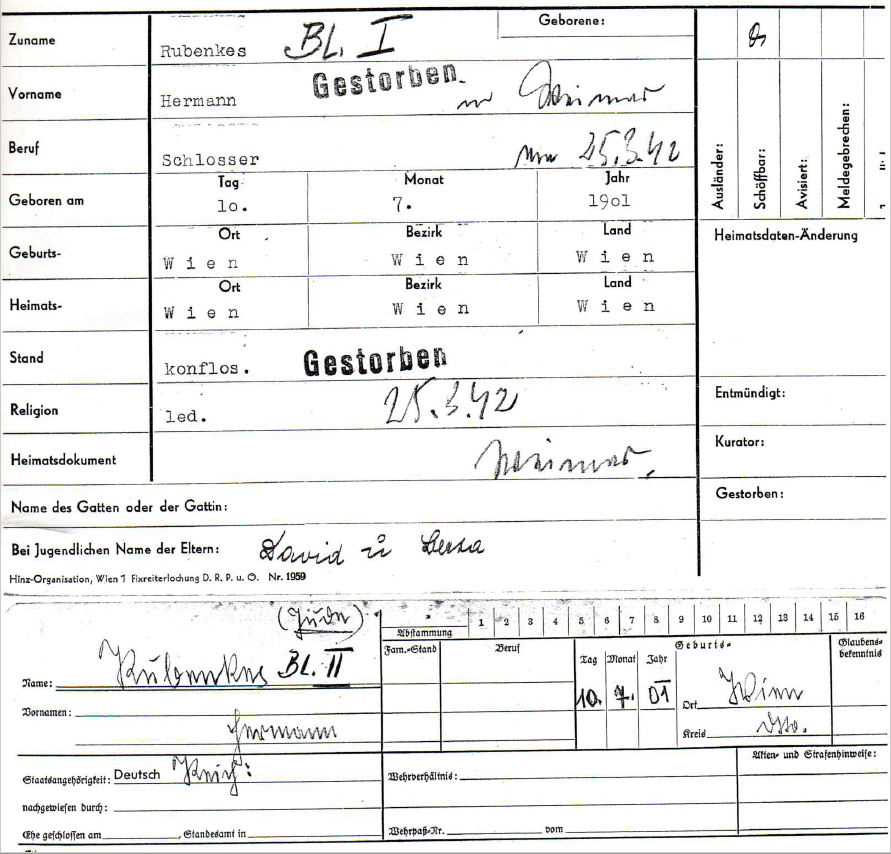 Zuname
Rubenkes
BL. I
Geborene:
Vorname
Hermann
Gestorben
in Weimar
Beruf
Schlosser
am 25.3.42
Tag Monat Jahr
Geboren am
1o. 7. 19o1
Ort Bezirk Land
Geburts-
W i e n W i e n W i e n
Ort Bezirk Land
Heimats-
W i e n W i e n W i e n
Stand
konflos.
Gestorben
Religion
led.
25.3.42
Heimatsdokument
Weimar
Name des Gatten oder der Gattin:
Bei Jugendlichen Name der Eltern: David u
Hinz-Organisation, Wien 1 Fixreiterlochung D. R. P. u. O. Nr. 1959
Ausländer:
Schöffbar:
Avisiert:
Meldegebrechen:
Heimatsdaten-Änderung
Entmündigt:
Kurator:
Gestorben:
(Jude)
1 2 3 4 5 6 7 8 9 10 11 12 13 14 15 16
Abstammung
Fam.-Stand Beruf
Geburts-
Tag Monat Jahr
Glaubens-
bekenntnis
Name: Rubenkes BL. II
10. 7. 01
Ort Wien
Vornamen:
Hermann
Kreis dto.
Staatsangehörigkeit: Deutsch Reich:
Wehrverhältnis:
Akten- und Strafenhinweise:
nachgewiesen durch:
Ehe geschlossen am , Standesamt in
Wehrpaß-Nr. vom